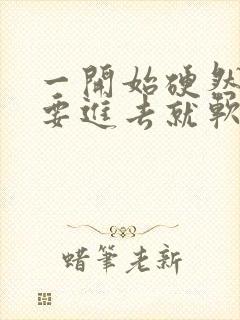 一開始硬然
要進去就軟
蜡筆老新